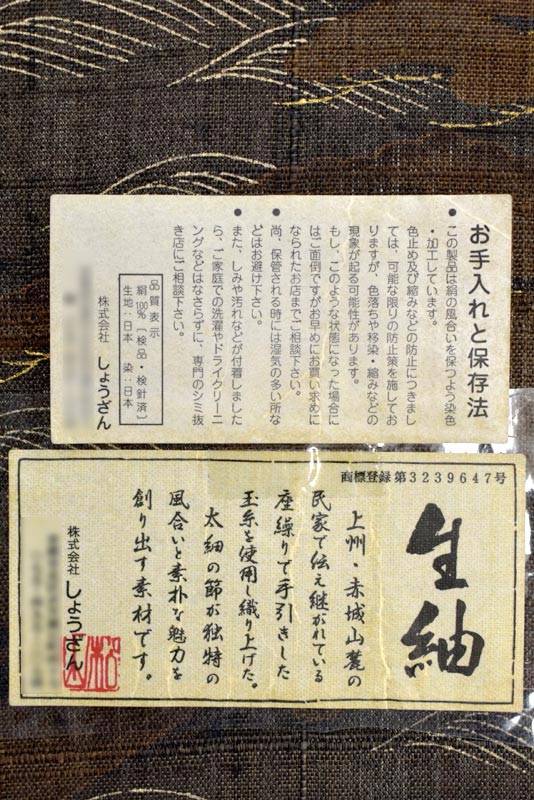 お手入れと保存法
● この製品は絹の風合いを保つよう染色
・加工しています。
色止め及び縮みなどの防止につきまし
ては、可能な限りの防止策を施してお
りますが、色落ちや移染・縮みなどの
現象が起る可能性があります。
もし、このような状態になった場合に
はご面倒ですがお早めにお買い求めに
なられたお店までご相談下さい。
● 尚、保管される時には湿気の多い所な
どはお避け下さい。
● また、しみや汚れなどが付着しました
ら、ご家庭での洗濯やドライクリーニ
ングなどはなさらずに、専門のシミ抜
き店にご相談下さい。
品質表示
絹100%〔検品・検針済〕
生地:日本 染:日本
株式会社 しょうざん
商標登録 第3239647号
生紬
上州・赤城山麓の
民家で伝え継がれている
座繰りで手引きした
玉糸を使用し織り上げた。
太細の節が独特の
風合いと素朴な魅力を
創り出す素材です。
株式会社 しょうざん